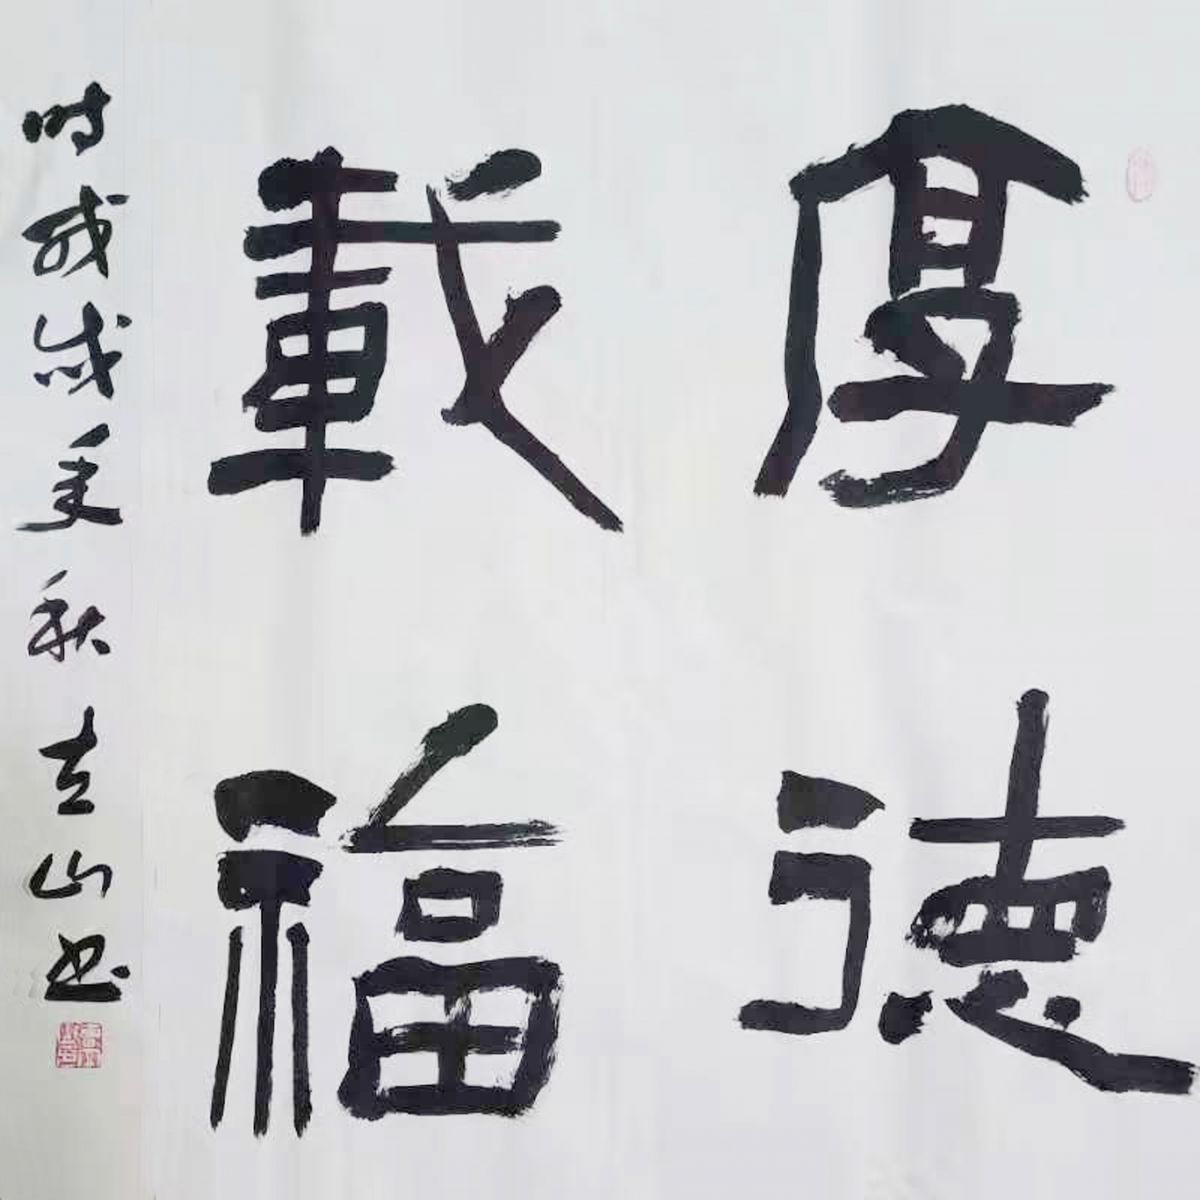 厚德
載福
时戊戌秋立山书